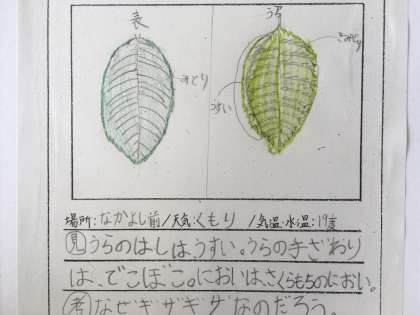 表
うら
みどり
きみどり
うすい
場所:なかよし前/天気:くもり /気温・水温:19度
見うらのはしは、うすい。うらの手ざわり
は、でこぼこ。においは、さくらもちのにおい。
考なぜギザギザなのだろう。